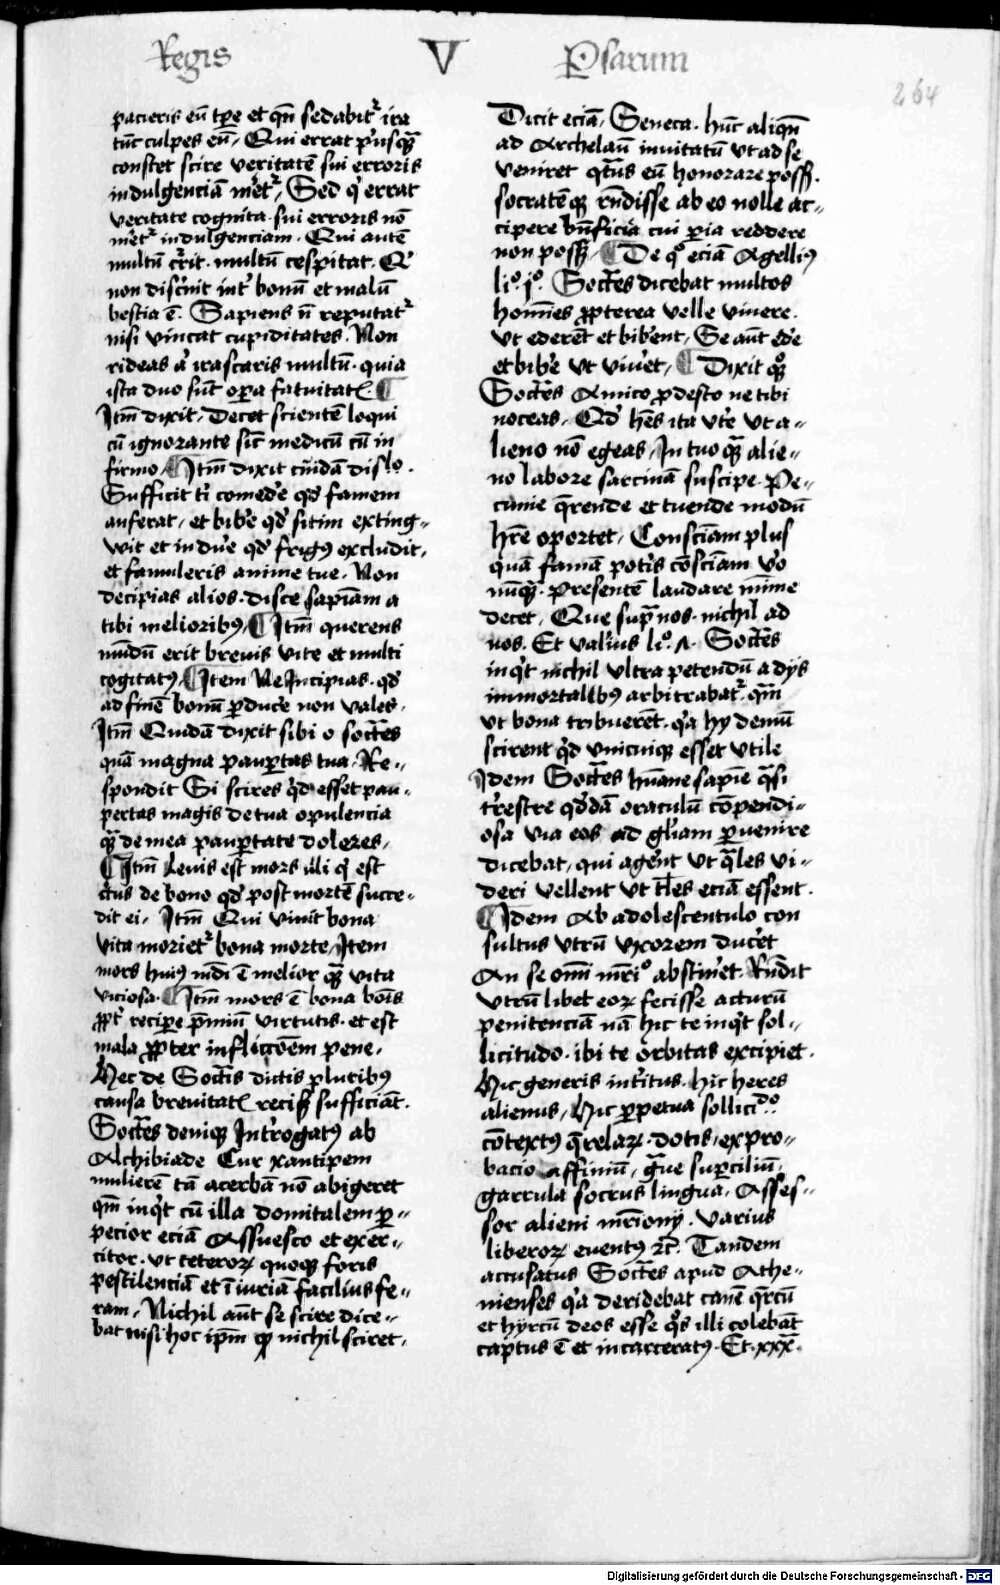 Regis V Psarum
264
pacieris eū tpe et qn̄ sedabit᷑ ira
tūc culpes eū / Qui errat pͥusqᷓ
constet scire veritatē sui erroris
indulgenciā met᷑ / Sed qͥ errat
veritate cognita sui erroris nō
met᷑ indulgenciam . Qui autē
multū cͥrit . multū cespitat . Qͥ
non discͥnit int᷑ bonū et malū
bestia ē . Sapiens n̄ reputat᷑
nisi vincat cupiditates . Non
rideas aͥ irascaris multū . quia
ista duo sūt opa fatuitatꝭ . ¶
Itm̄ dixit / Decet scientē loqui
cū ignorante sic̄ medicū cū in
firmo / ¶ Itm̄ dixit cuidā disͥlo .
Sufficit tͥ comedͥe qd̓ famem
auferat / et bibͥe qd̓ sitim exting=
wit et induͥe qd̓ frigꝰ excludit /
et famuleris anime tue . Non
decipias alios . disce sapiam a
tibi melioribꝰ / ¶ Itm̄ querens
mūdū erit brevis vite et multi
cogitatꝰ / ¶ Item Ne Incipias . qd̓
ad finē bonū pduce non vales .
Itm̄ Quidā dixit sibi o soctᷓes
quā magna paupertas tua . Re=
spondit Si scires qͥd esset pau=
pertas magis de tua opulencia
qᷓ de mea paupertate doleres .
¶ Itm̄ Levis est mors illi qͥ est
ctus de bono qd̓ post mortē succe=
dit ei . Itm̄ Qui vivit bona
vita moriet᷑ bona morte / Item
mors huiꝰ mdͥi ē melior qᷓ vita
viciosa . ¶ Itm̄ mors ē bona bois
ꝓpt᷑ recipere p̄miū virtutis . et est
mala ꝓpter inflicciōem pene .
Hec de Soctᷓis dictis pluribꝰ
causa brevitatꝭ recisꝭ sufficiāt .
Soctᷓes deniqꝫ Introgatꝰ ab
Alchibiade Cur xantipem
mulierē tā acerbā nō abigeret
qm̄ inqͥt cū illa domi talem p=
pecior eciā Assuesco et exer=
citor . ut ceteroꝝ quoqꝫ foris
pestilenciā et īiuriā facilius fe=
ram . Nichil aūt se scire dice=
bat nisi hoc ipm̄ qꝫ nichil sciret .
Dicit eciā / Seneca . hūc aliqn̄
ad Archelaū invitatū ut ad se
veniret qtͣus eū honorare posꝫ .
socratēqꝫ rn̄disse ab eo nolle ac=
cipere bn̄ficia cui pia reddere
non posꝫ . ¶ De qͦ eciā Agelliꝰ
liͦ . jͦ . Soctᷓes dicebat multos
homīes ꝓpterea velle vivere .
ut ederēt et bibͥent / Se aūt edͥe
et bibͥe ut vivͥet / ¶ Dixit qꝫ
Soctᷓes Amico ꝓdesto ne tibi
noceas . Qd̓ hēs ita utͥe ut a=
lieno nō egeas / In tuo qᷓ alie=
no labore sarcinā suscipe . Pe=
cunie qͥrende et tuende modū
hr̄e oportet / Consciam plus
quā famā potis cōsciam vͦo
nūqᷓ . Presentē laudare mīme
decet . Que supᷓ nos . nichil ad
nos . Et valiūs liͦ . Soctᷓes
inqͥt nichil ultra petendū a dijs
immortalibꝰ arbitrabat᷑ . qᷓm
ut bona tribuerēt . qᷓa hy demū
scirent qͥd unicuiqꝫ esset utile
Idem Soctᷓes hūane sapīe qᷓsi
tͥrestre qd̓dā oraculū cōpendi=
osa via eos ad glͥiam pvenire
dicebat . qui agͥent ut qᷓles vi=
deri vellent ut tͣles eciā essent .
¶ Idem Ab adolescentulo con
sultus utrū uxorem ducͥet
An se omī mr̄iͦ abstinͥet Rn̄dit
utrū libet eoꝝ fecisse acturū
penitenciā nā hic te inqͥt sol=
licitudo . ibi te orbitas excipiet .
Hic generis intͥitus . hic heres
alienus / Hic ppetua solliciᵈᵒ .
cōtextꝰ qͥrelaꝝ . dotis . expro=
bacio affiniū . gᷓue supciliū .
garrula socrus lingua . Asses=
sor alieni mr̄ionij . varius
liberoꝝ eventꝰ ⁊c̄ . Tandem
accusatus Soctᷓes apud Athe=
nienses qᷓa deridebat canē qͥrcū
et hyrcū deos esse qͦs illi colebāt
captus ē et incarceratꝰ . Et . xxx .
Digitalisierung gefördert durch die Deutsche Forschungsgemeinschaft - DFG